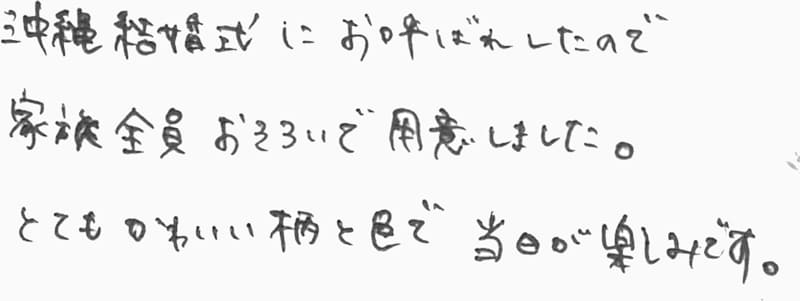 沖縄結婚式にお呼ばれしたので
家族全員おそろいで用意しました。
とてもかわいい柄と色で当日が楽しみです。